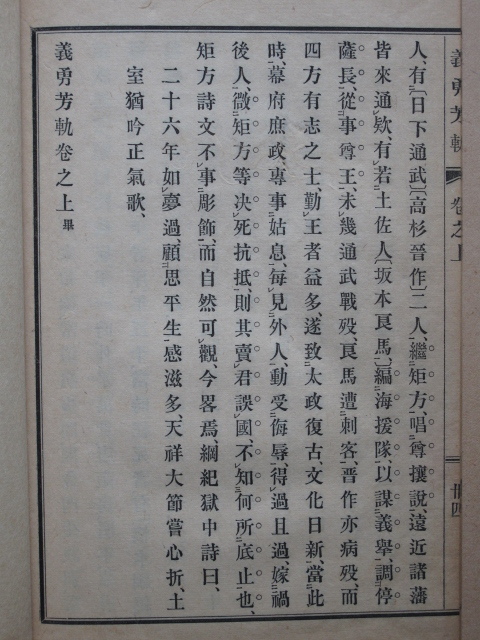 義勇芳軌　卷之上　卌四
人、有〔日下通武〕〔高杉晉作〕二人、繼矩方、唱尊攘說、遠近諸藩
皆來通欵、有若土佐人〔坂本良馬〕、編海援隊、以謀義舉、調停
薩長、從事尊王、未幾通武戰歿、良馬遭刺客、晉作亦病歿、而
四方有志之士、勤王者益多、遂致太政復古、文化日新、當此
時、幕府庶政、專事姑息、每見外人、動受侮辱、得過且過、嫁禍
後人、微矩方等决死抗抵、則其賣君誤國、不知何所底止也、
矩方詩文不事彫飾、而自然可觀、今畧焉、綱紀獄中詩曰、
二十六年如夢過、顧思平生感滋多、天祥大節嘗心折、土
室猶吟正氣歌、
義勇芳軌卷之上 畢